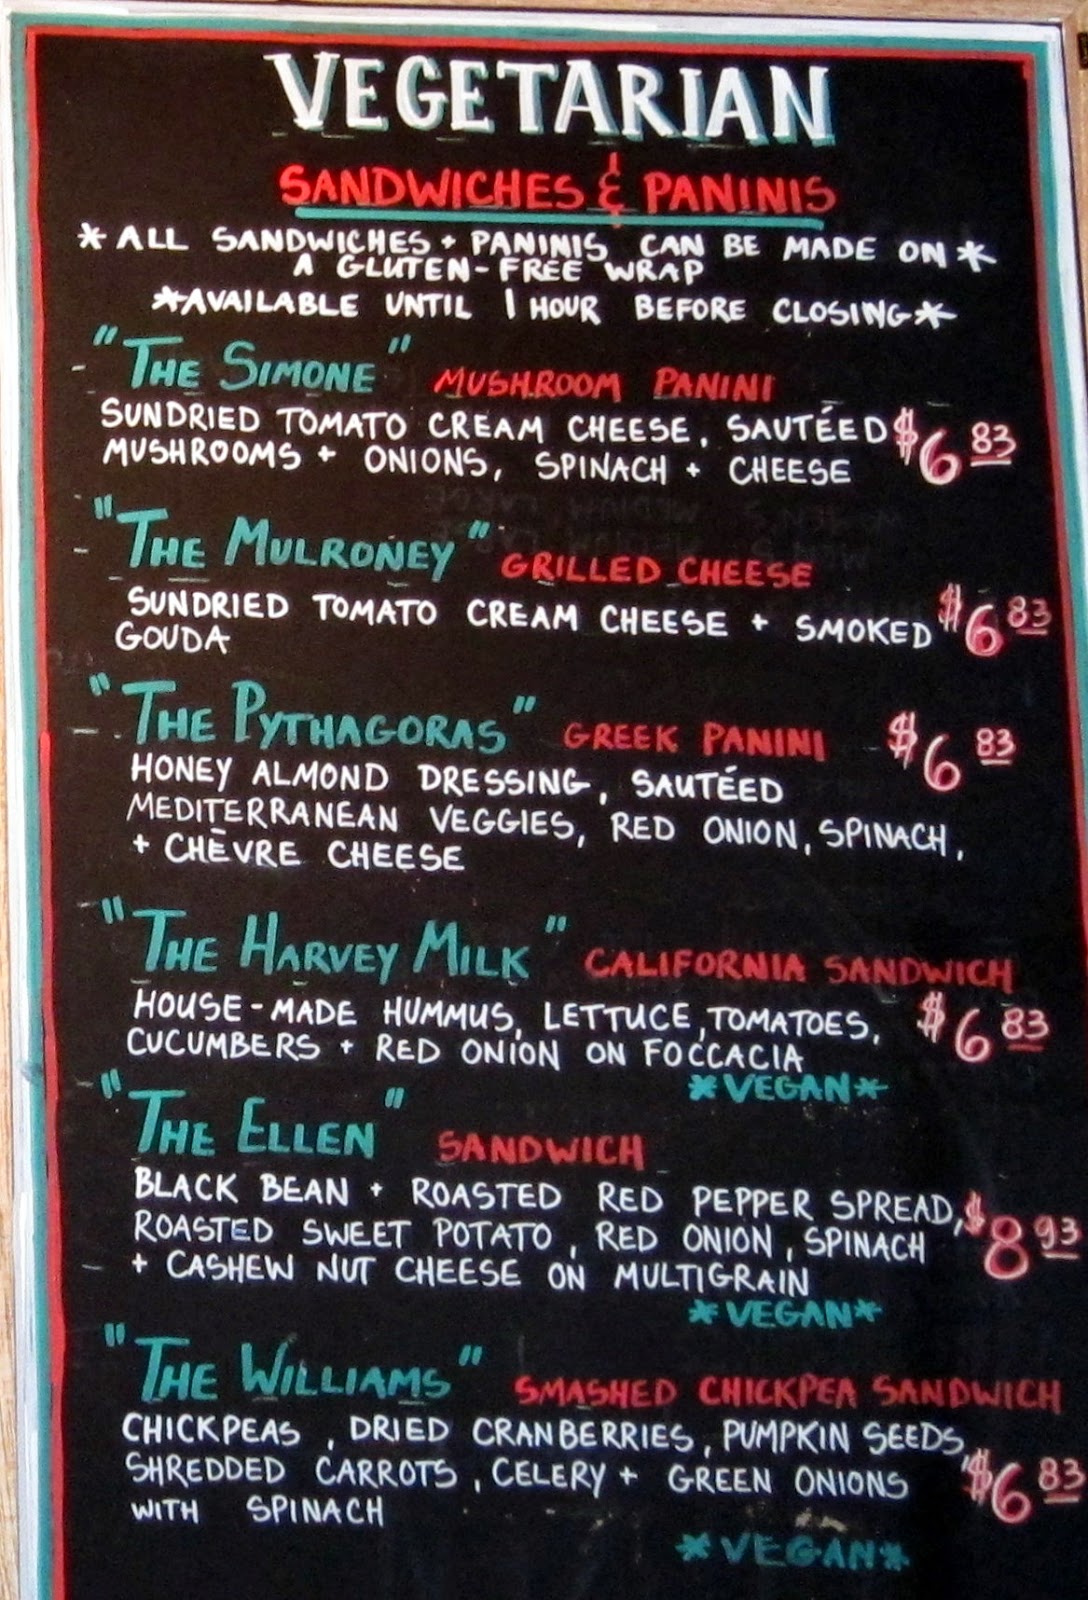 VEGETARIAN
SANDWICHES & PANINIS
*ALL SANDWICHES + PANINIS CAN BE MADE ON*
A GLUTEN-FREE WRAP
*AVAILABLE UNTIL 1 HOUR BEFORE CLOSING*
"THE SIMONE" MUSHROOM PANINI
SUNDRIED TOMATO CREAM CHEESE, SAUTÉED $6.83
MUSHROOMS + ONIONS, SPINACH + CHEESE
"THE MULRONEY" GRILLED CHEESE
SUNDRIED TOMATO CREAM CHEESE + SMOKED $6 83
GOUDA
"THE PYTHAGORAS" GREEK PANINI $6 83
HONEY ALMOND DRESSING, SAUTÉED
MEDITERRANEAN VEGGIES, RED ONION, SPINACH,
+ CHÈVRE CHEESE
"THE HARVEY MILK" CALIFORNIA SANDWICH
HOUSE-MADE HUMMUS, LETTUCE, TOMATOES, $6 83
CUCUMBERS + RED ONION ON FOCCACIA
*VEGAN*
"THE ELLEN" SANDWICH
BLACK BEAN + ROASTED RED PEPPER SPREAD, $8 93
ROASTED SWEET POTATO, RED ONION, SPINACH
+ CASHEW NUT CHEESE ON MULTIGRAIN
*VEGAN*
"THE WILLIAMS" SMASHED CHICKPEA SANDWICH
CHICKPEAS, DRIED CRANBERRIES, PUMPKIN SEEDS,
SHREDDED CARROTS, CELERY + GREEN ONIONS $6 83
WITH SPINACH
*VEGAN*